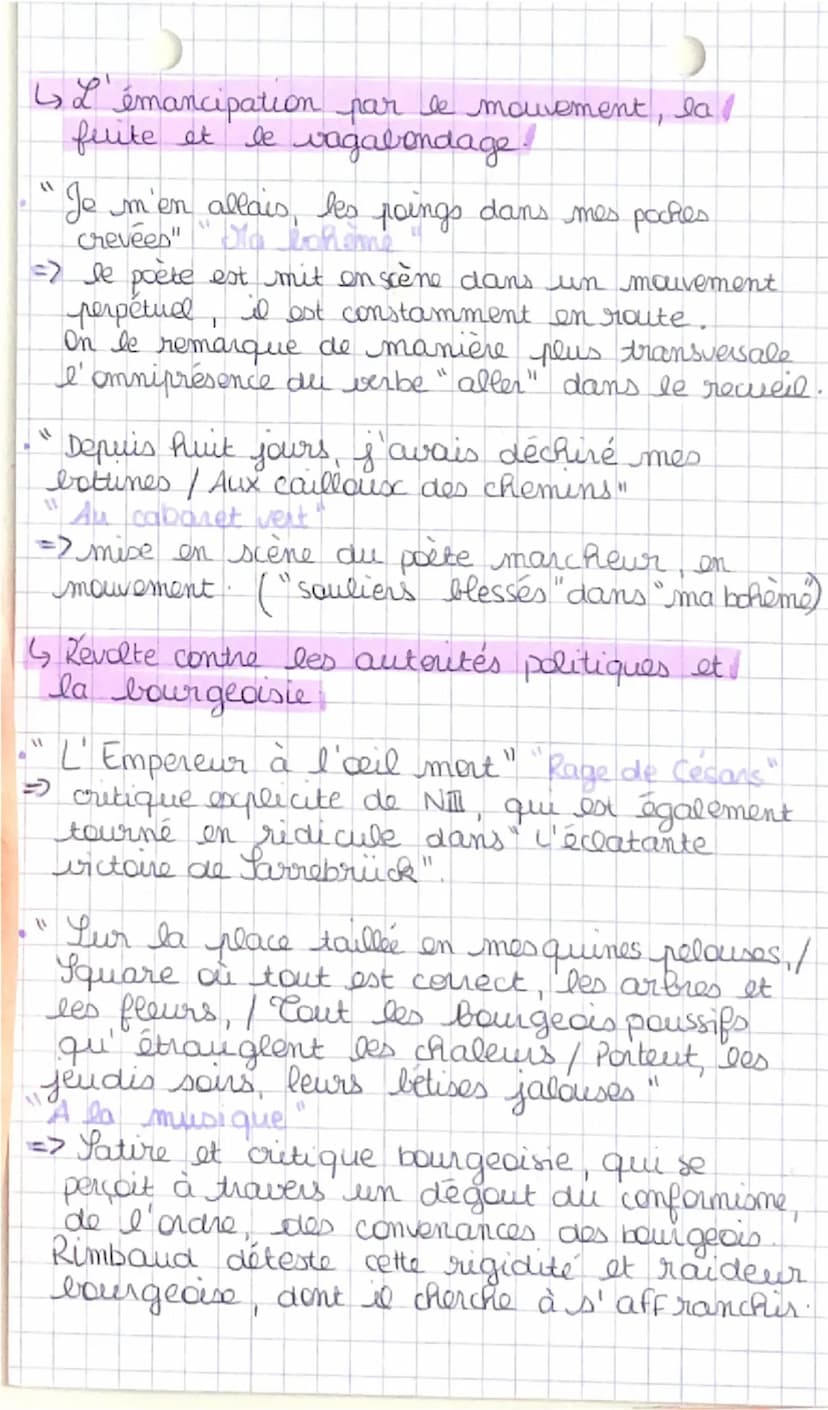 ↳ L'émancipation par le mouvement, la
fuite et le vagabondage.
. "Je m'en allais, les poings dans mes poches
crevées" "Ma bohème"
=> le poète est mit en scène dans un mouvement
perpétuel, il est constamment en route.
On le remarque de manière plus transversale
l'omniprésence du verbe "aller" dans le recueil.
. "Depuis huit jours, j'avais déchiré mes
bottines / Aux cailloux des chemins"
"Au cabaret vert"
=> mise en scène du poète marcheur, en
mouvement. ("souliers blessés" dans "ma bohème")
↳ Révolte contre les autorités politiques et
la bourgeoisie
. "L'Empereur à l'œil mort" "Rage de Césars"
=> critique explicite de NIII, qui est également
tourné en ridicule dans "L'éclatante
victoire de Sarrebrück".
. "Sur la place taillée en mesquines pelouses, /
Square où tout est correct, les arbres et
les fleurs, / Tout les bourgeois poussifs
qu'étranglent les chaleurs / Portent, les
jeudis soirs, leurs bêtises jalouses"
"A la musique"
=> Satire et critique bourgeoisie, qui se
perçoit à travers un dégout du conformisme,
de l'ordre, des convenances des bourgeois.
Rimbaud déteste cette rigidité et raideur
bourgeoise, dont il cherche à s'affranchir.